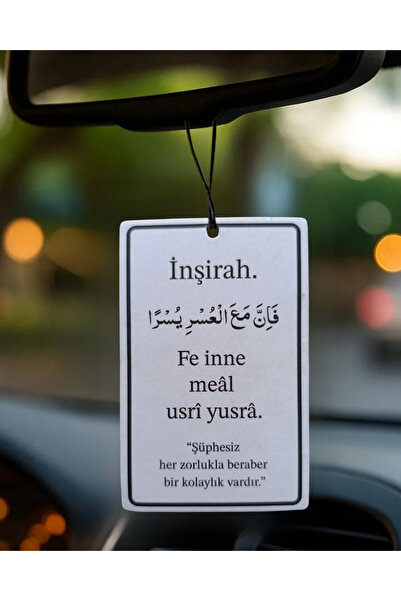 İnşirah.
فَاِنَّ مَعَ الْعُسْرِ يُسْرًا
Fe inne
meâl
usrî yusrâ.
“Şüphesiz
her zorlukla beraber
bir kolaylık vardır.”